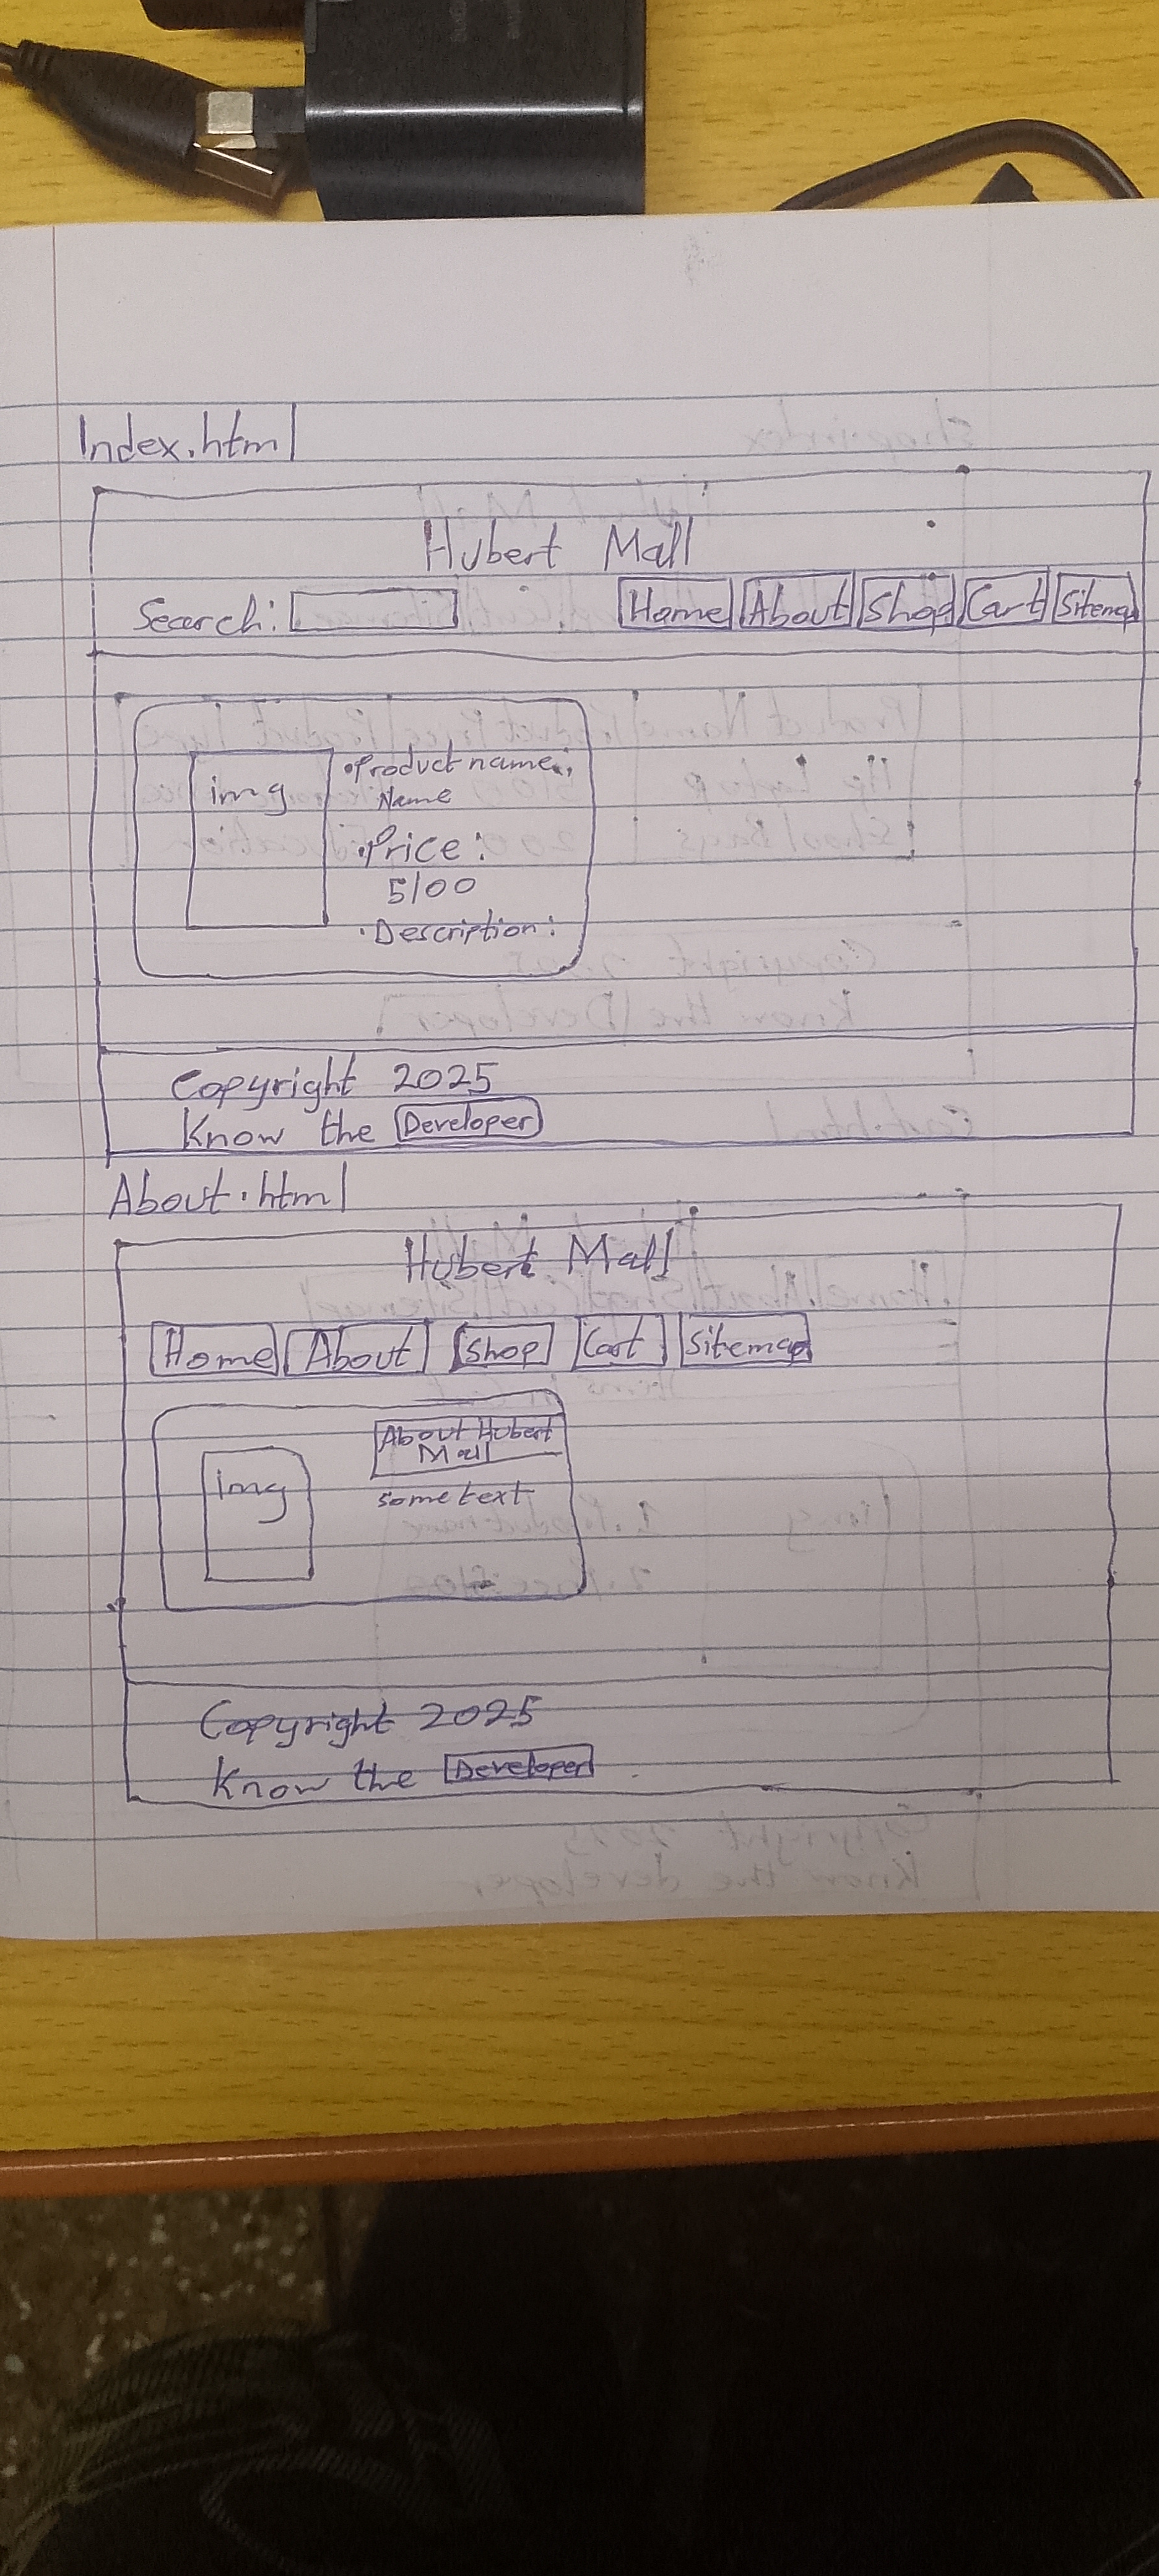 Index.html
Hubert Mall
Search: Home About Shop Cart Sitemap
img
•Product name:
Name
•Price:
5100
•Description:
Copyright 2025
Know the Developer
About.html
Hubert Mall
Home About Shop Cart Sitemap
img
About Hubert
Mall
some text
Copyright 2025
Know the Developer